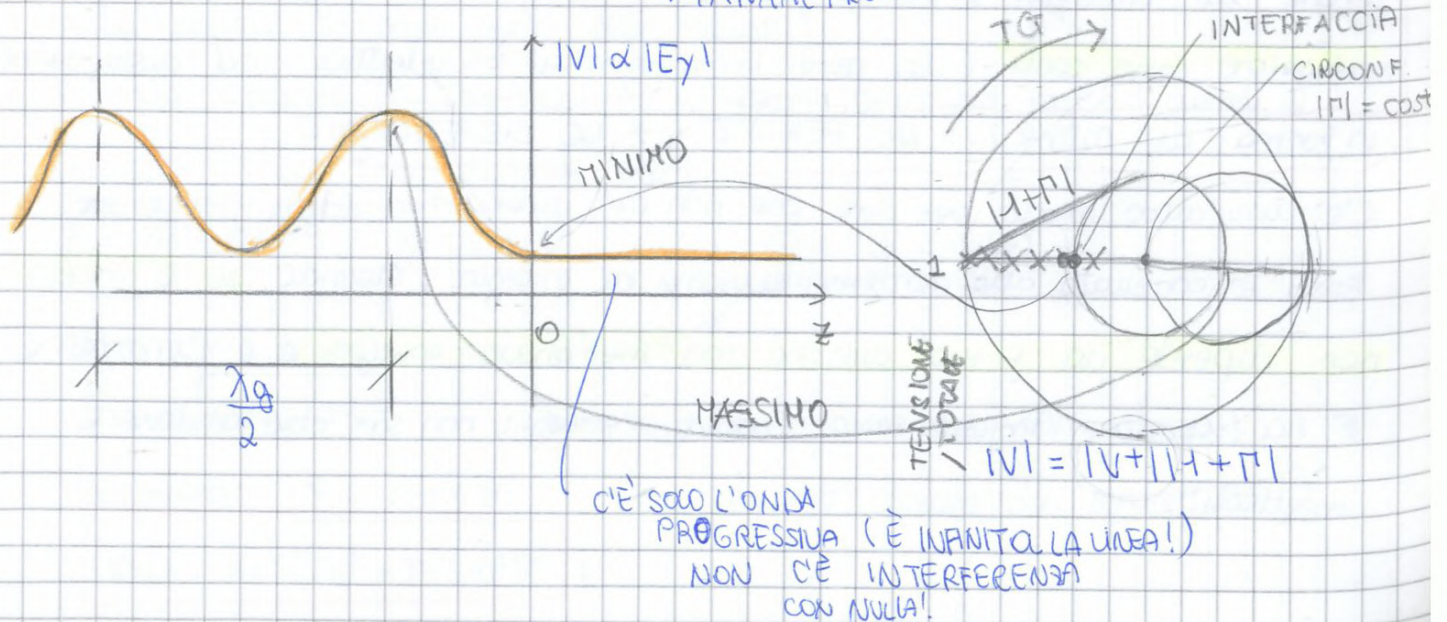 |V| α |Ey|
TG
INTERFACCIA
CIRCONF.
|Γ| = cost
MINIMO
|1+Γ|
-1
0
z
λg
2
MASSIMO
TENSIONE
TOTALE
|V| = |V+||1+Γ|
C'È SOLO L'ONDA
PROGRESSIVA (È INFINITA LA LINEA!)
NON C'È INTERFERENZA
CON NULLA!